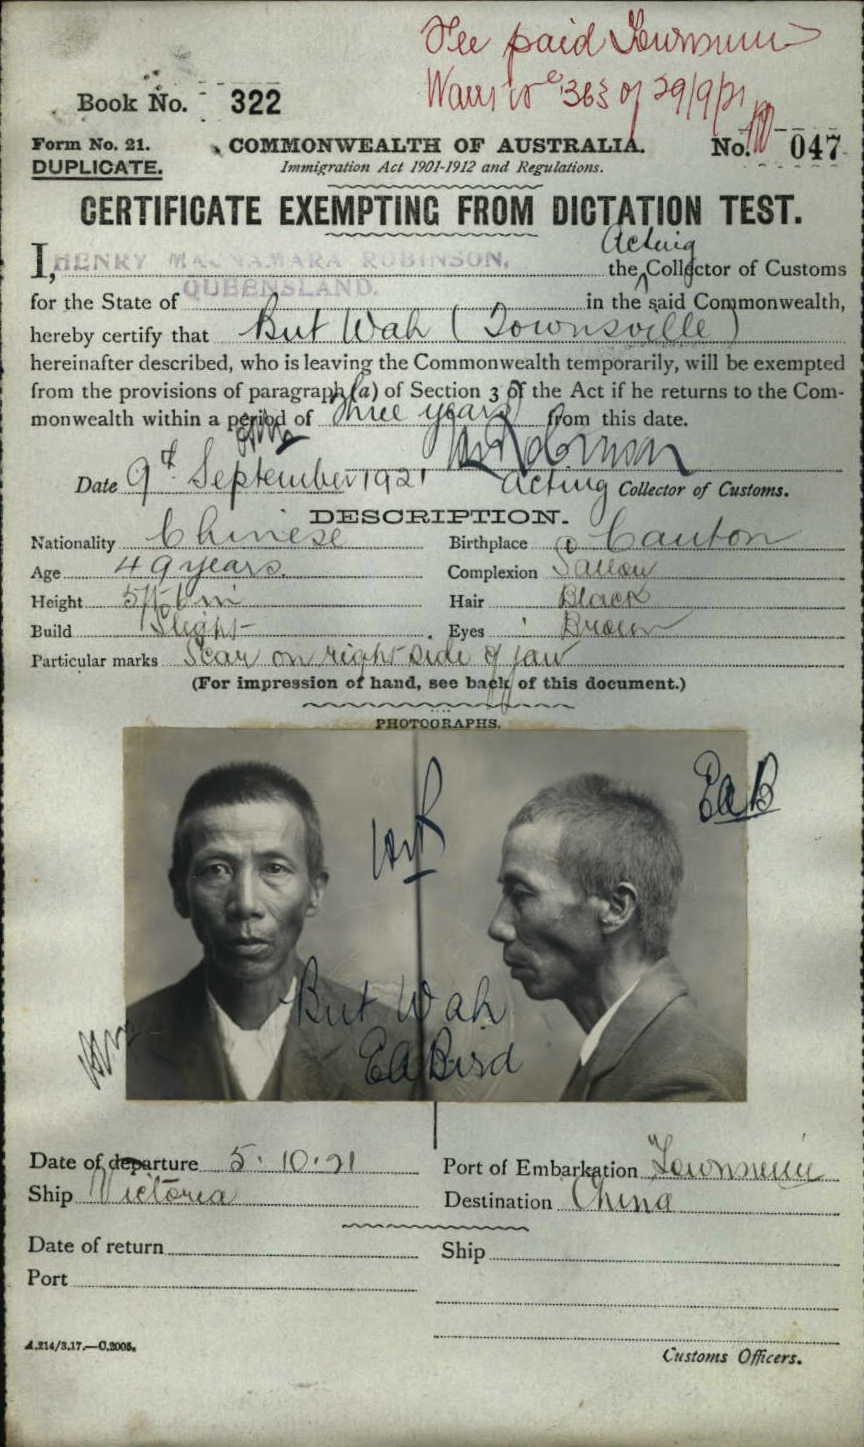 Fee paid Townsville
363 of 29/9/21
Book No. 322
Form No. 21.
DUPLICATE.
COMMONWEALTH OF AUSTRALIA.
Immigration Act 1901-1912 and Regulations.
No. 047
CERTIFICATE EXEMPTING FROM DICTATION TEST.
Acting
I, HENRY MACNAMARA ROBINSON, the Collector of Customs
for the State of QUEENSLAND. in the said Commonwealth,
hereby certify that But Wah (Townsville)
hereinafter described, who is leaving the Commonwealth temporarily, will be exempted
from the provisions of paragraph (a) of Section 3 of the Act if he returns to the Com-
monwealth within a period of three years from this date.
Robinson
Date 9th September 1921 Acting Collector of Customs.
DESCRIPTION.
Nationality Chinese Birthplace Canton
Age 49 years. Complexion Sallow
Height Hair Black
Build Slight Eyes Brown
Particular marks Scar on right side of jaw
(For impression of hand, see back of this document.)
PHOTOGRAPHS.
EaB
But Wah
Ea Bird
Date of departure 5.10.21 Port of Embarkation Townsville
Ship Victoria Destination China
Date of return Ship
Port
A.214/3.17.—C.2005.
Customs Officers.